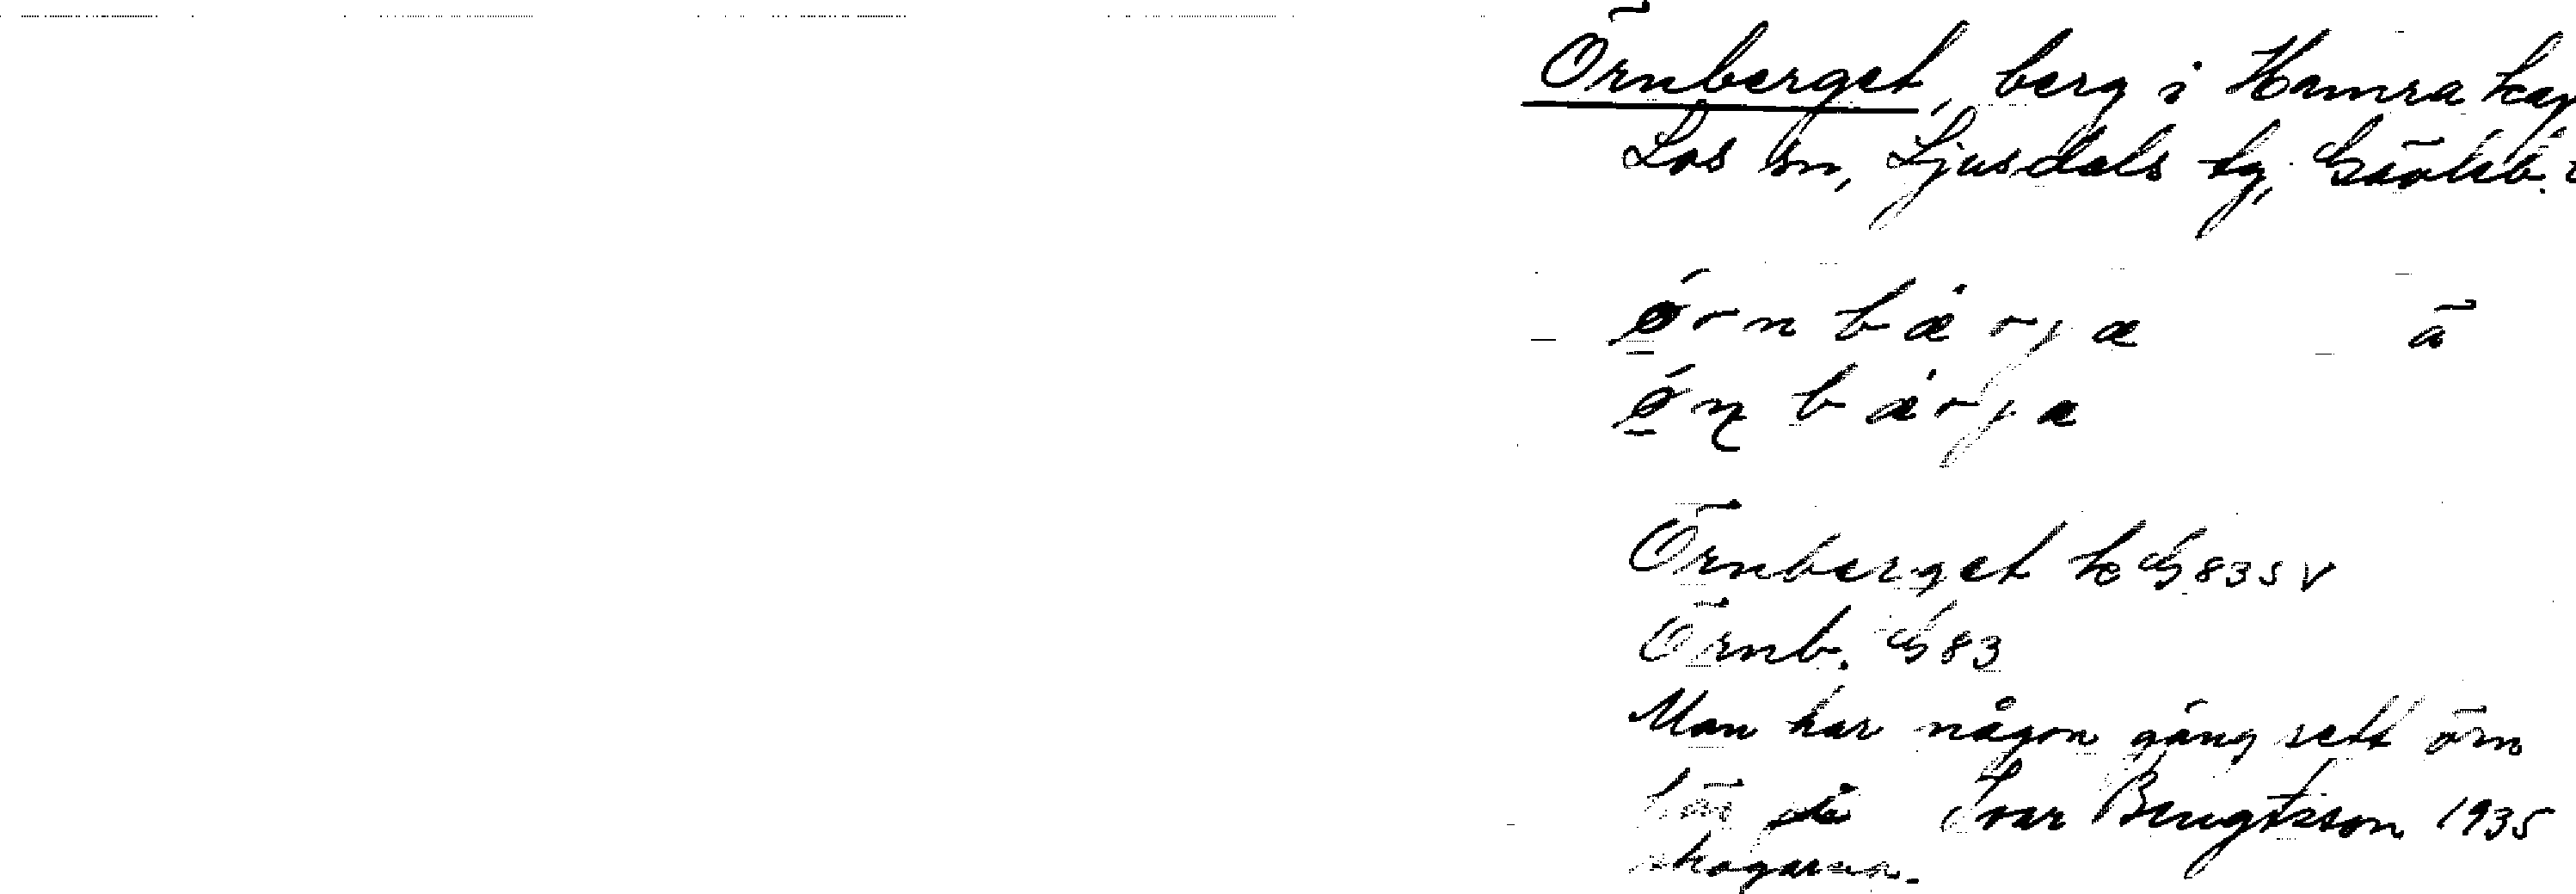 Örnberget, berg i Hamra kap
Los sn, Ljusdals tg, Gävleb.
ǿrnbærjæ ä
ǿɳbærjæ
Örnberget k G 83 S V
Örnb. G 83
Man har någon gång sett örn
här på Ivar Bengtsson 1935
skogarna.